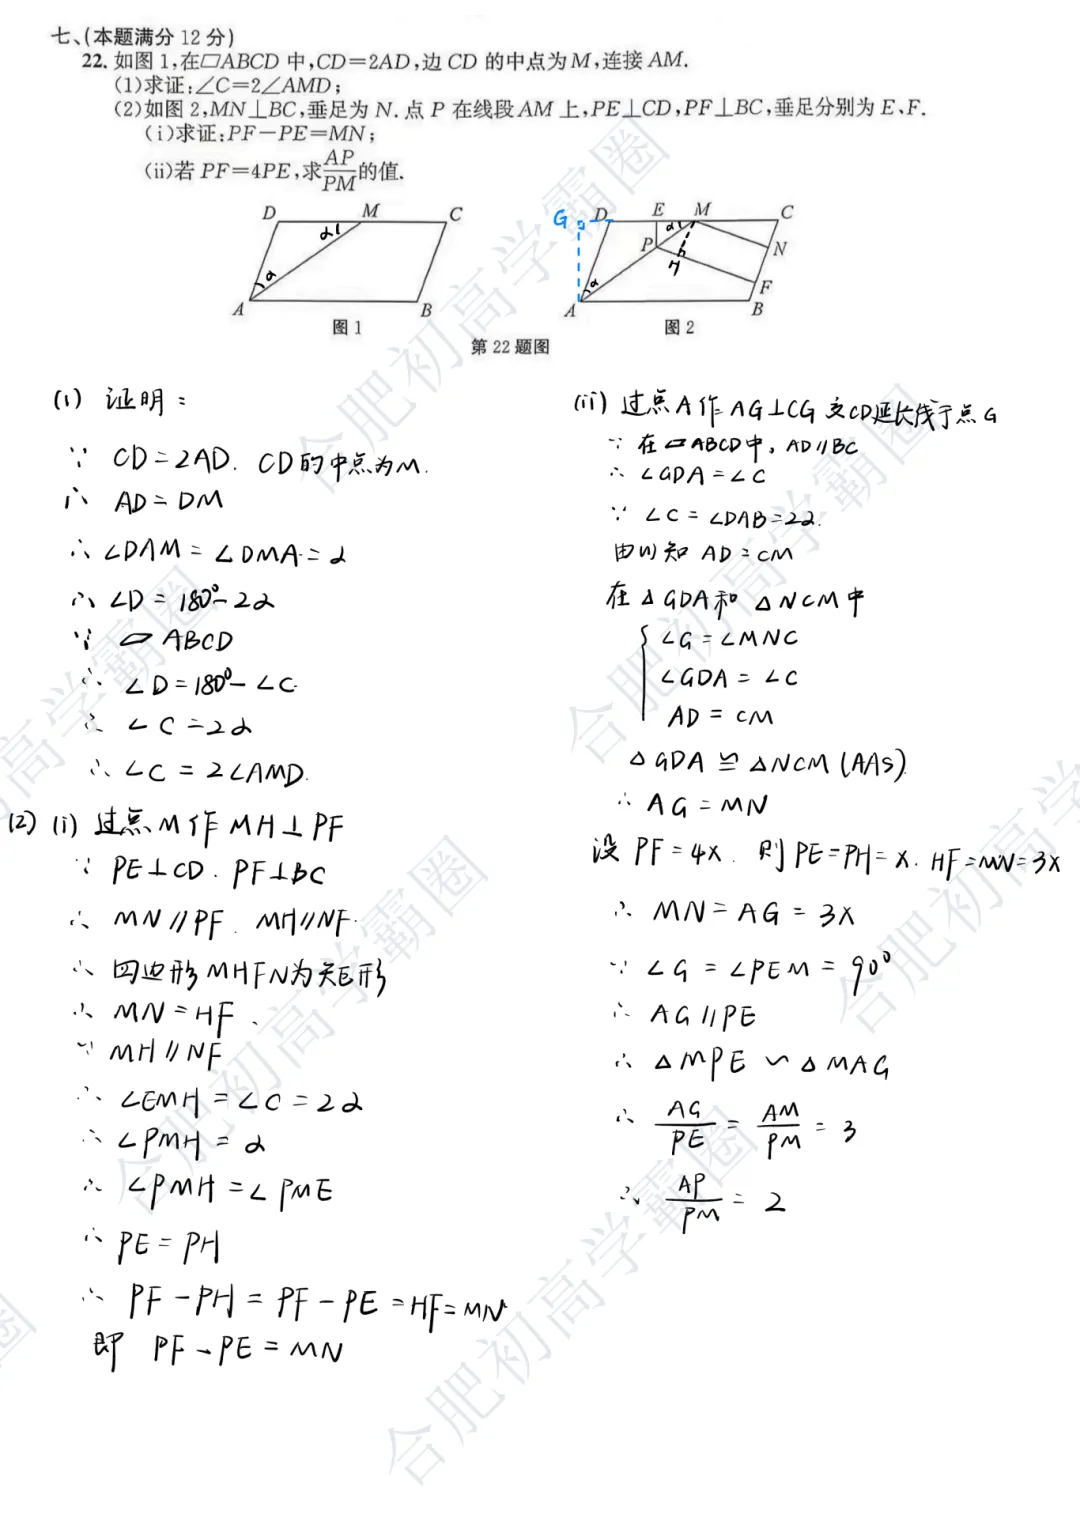 七、(本题满分 12 分)
22. 如图 1,在▱ABCD 中,CD=2AD,边 CD 的中点为 M,连接 AM.
(1)求证:∠C=2∠AMD;
(2)如图 2,MN⊥BC,垂足为 N. 点 P 在线段 AM 上,PE⊥CD,PF⊥BC,垂足分别为 E、F.
(i)求证:PF-PE=MN;
(ii)若 PF=4PE,求AP/PM的值.
D M C
α
α
A B
图 1
G D E M C
α
P N
H
α F
A B
图 2
第 22 题图
(1) 证明:
∵ CD=2AD. CD的中点为M.
∴ AD=DM
∴ ∠DAM=∠DMA=α
∴ ∠D=180°-2α
∵ ▱ABCD
∴ ∠D=180°-∠C
∴ ∠C=2α
∴ ∠C=2∠AMD.
(2) (i) 过点M作MH⊥PF
∵ PE⊥CD. PF⊥BC
∴ MN∥PF. MH∥NF.
∴ 四边形MHFN为矩形
∴ MN=HF.
∵ MH∥NF
∴ ∠EMH=∠C=2α
∴ ∠PMH=α
∴ ∠PMH=∠PME
∴ PE=PH
∴ PF-PH=PF-PE=HF=MN
即 PF-PE=MN
(ii) 过点A作AG⊥CG 交CD延长线于点G
∵ 在▱ABCD中, AD∥BC
∴ ∠GDA=∠C
∵ ∠C=∠DAB=2α.
由(1)知 AD=CM
在△GDA和△NCM中
∠G=∠MNC
∠GDA=∠C
AD=CM
△GDA≌△NCM(AAS).
∴ AG=MN
设 PF=4x. 则PE=PH=x. HF=MN=3x
∴ MN=AG=3x
∵ ∠G=∠PEM=90°
∴ AG∥PE
∴ △MPE∽△MAG
∴ AG/PE=AM/PM=3
∴ AP/PM=2
合肥初高学霸圈